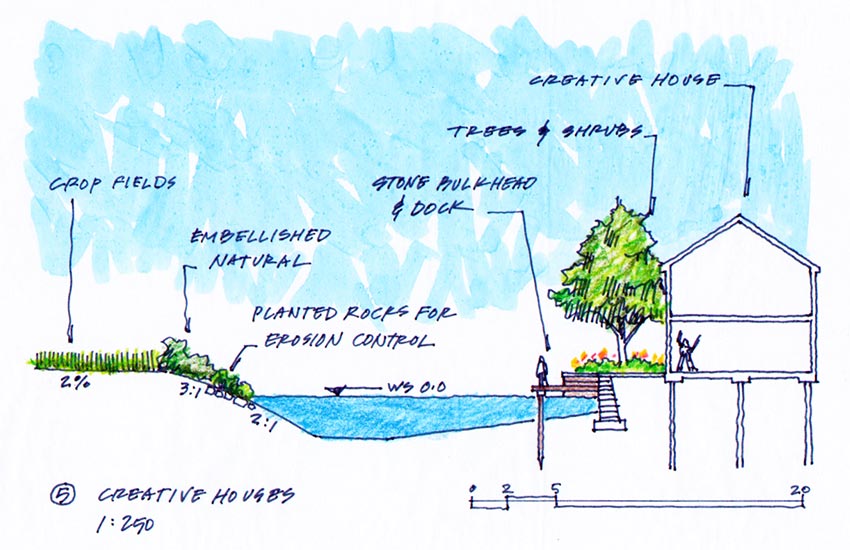 CREATIVE HOUSE
TREES & SHRUBS
CROP FIELDS
STONE BULKHEAD
& DOCK
EMBELLISHED
NATURAL
PLANTED ROCKS FOR
EROSION CONTROL
2%
3:1
WS 0.0
2:1
5 CREATIVE HOUSES
1:250
0 2 5 20